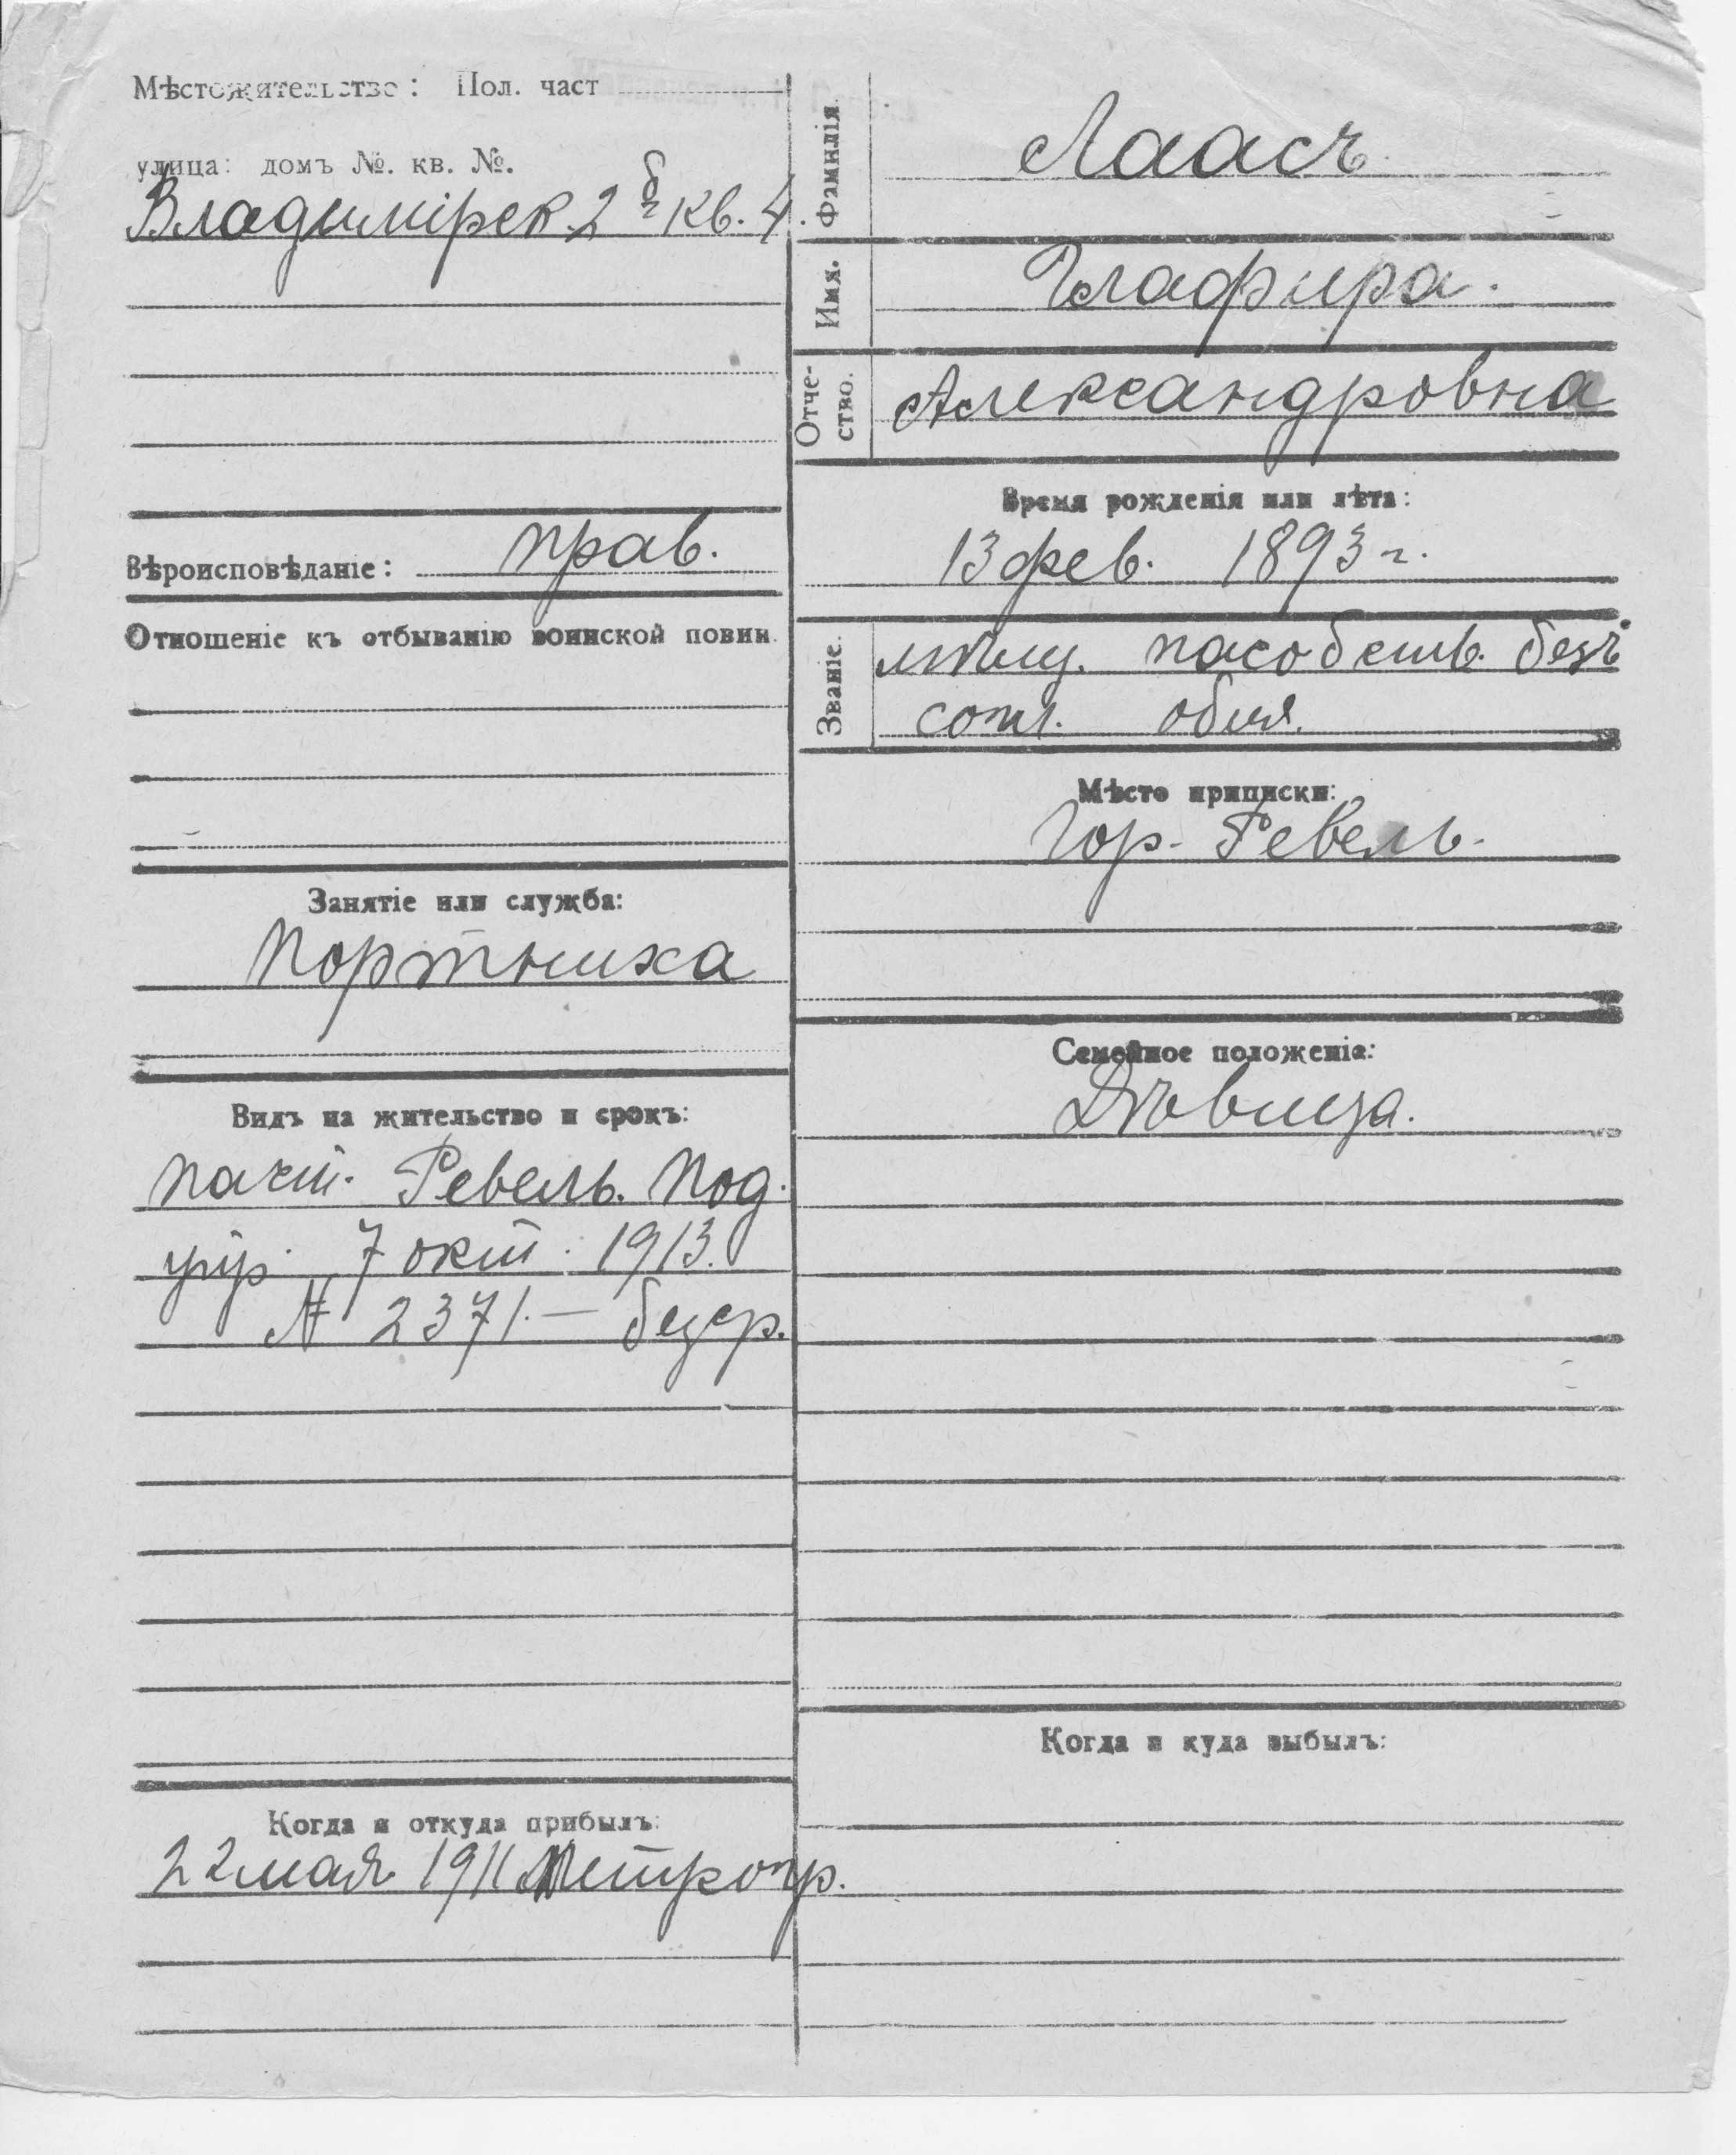 Мѣстожительство: Пол. част
улица: домъ №. кв. №.
Владимірск. 2 кв. 4.
Вѣроисповѣданіе: прав.
Отношеніе къ отбыванію воинской повин.
Занятіе или служба:
Портниха
Видъ на жительство и срокъ:
Ревель. Под.
упр. 7 окт. 1913.
№ 2371. — безср.
Когда и откуда прибылъ:
22 мая 1911
Фамилія
Лаасъ
Имя.
Глафира.
Отче-
ство.
Александровна
Время рожденія или лѣта:
13 фев. 1893 г.
Званіе.
мѣщ. безъ
Мѣсто приписки:
Гор. Ревель.
Семейное положеніе:
Дѣвица.
Когда и куда выбылъ: